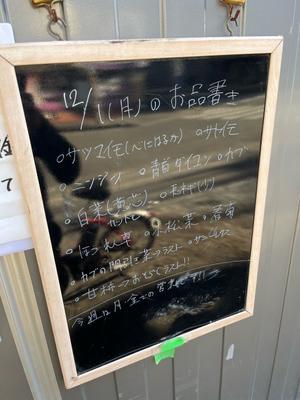 12/1(月)のお品書き
○サツマイモ(べにはるか) ○サトイモ
○ニンジン ○青首ダイコン ○カブ
○白菜(黄芯) ○長ネギ
○ほうれん草 ○小松菜 ○春菊
○カブの間引き菜→ラスト
○甘柿→おそらくラスト!!
今週は月・金での営業です!!